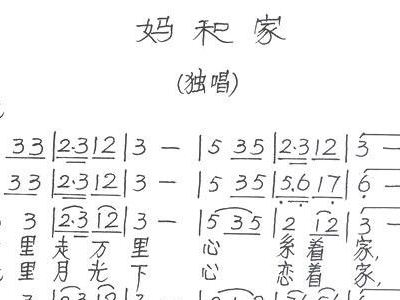 妈和家
(独唱)
33 | 2·3 12 | 3 — | 5 35 | 2·3 12 | 3 —
33 | 2·3 12 | 3 — | 5 35 | 5·6 17 | 6 —
3 | 2·3 12 | 3 — | 5 35 | 2 12 | 3 —
里走万里 心 系着家,
里月光下 心 恋着家,